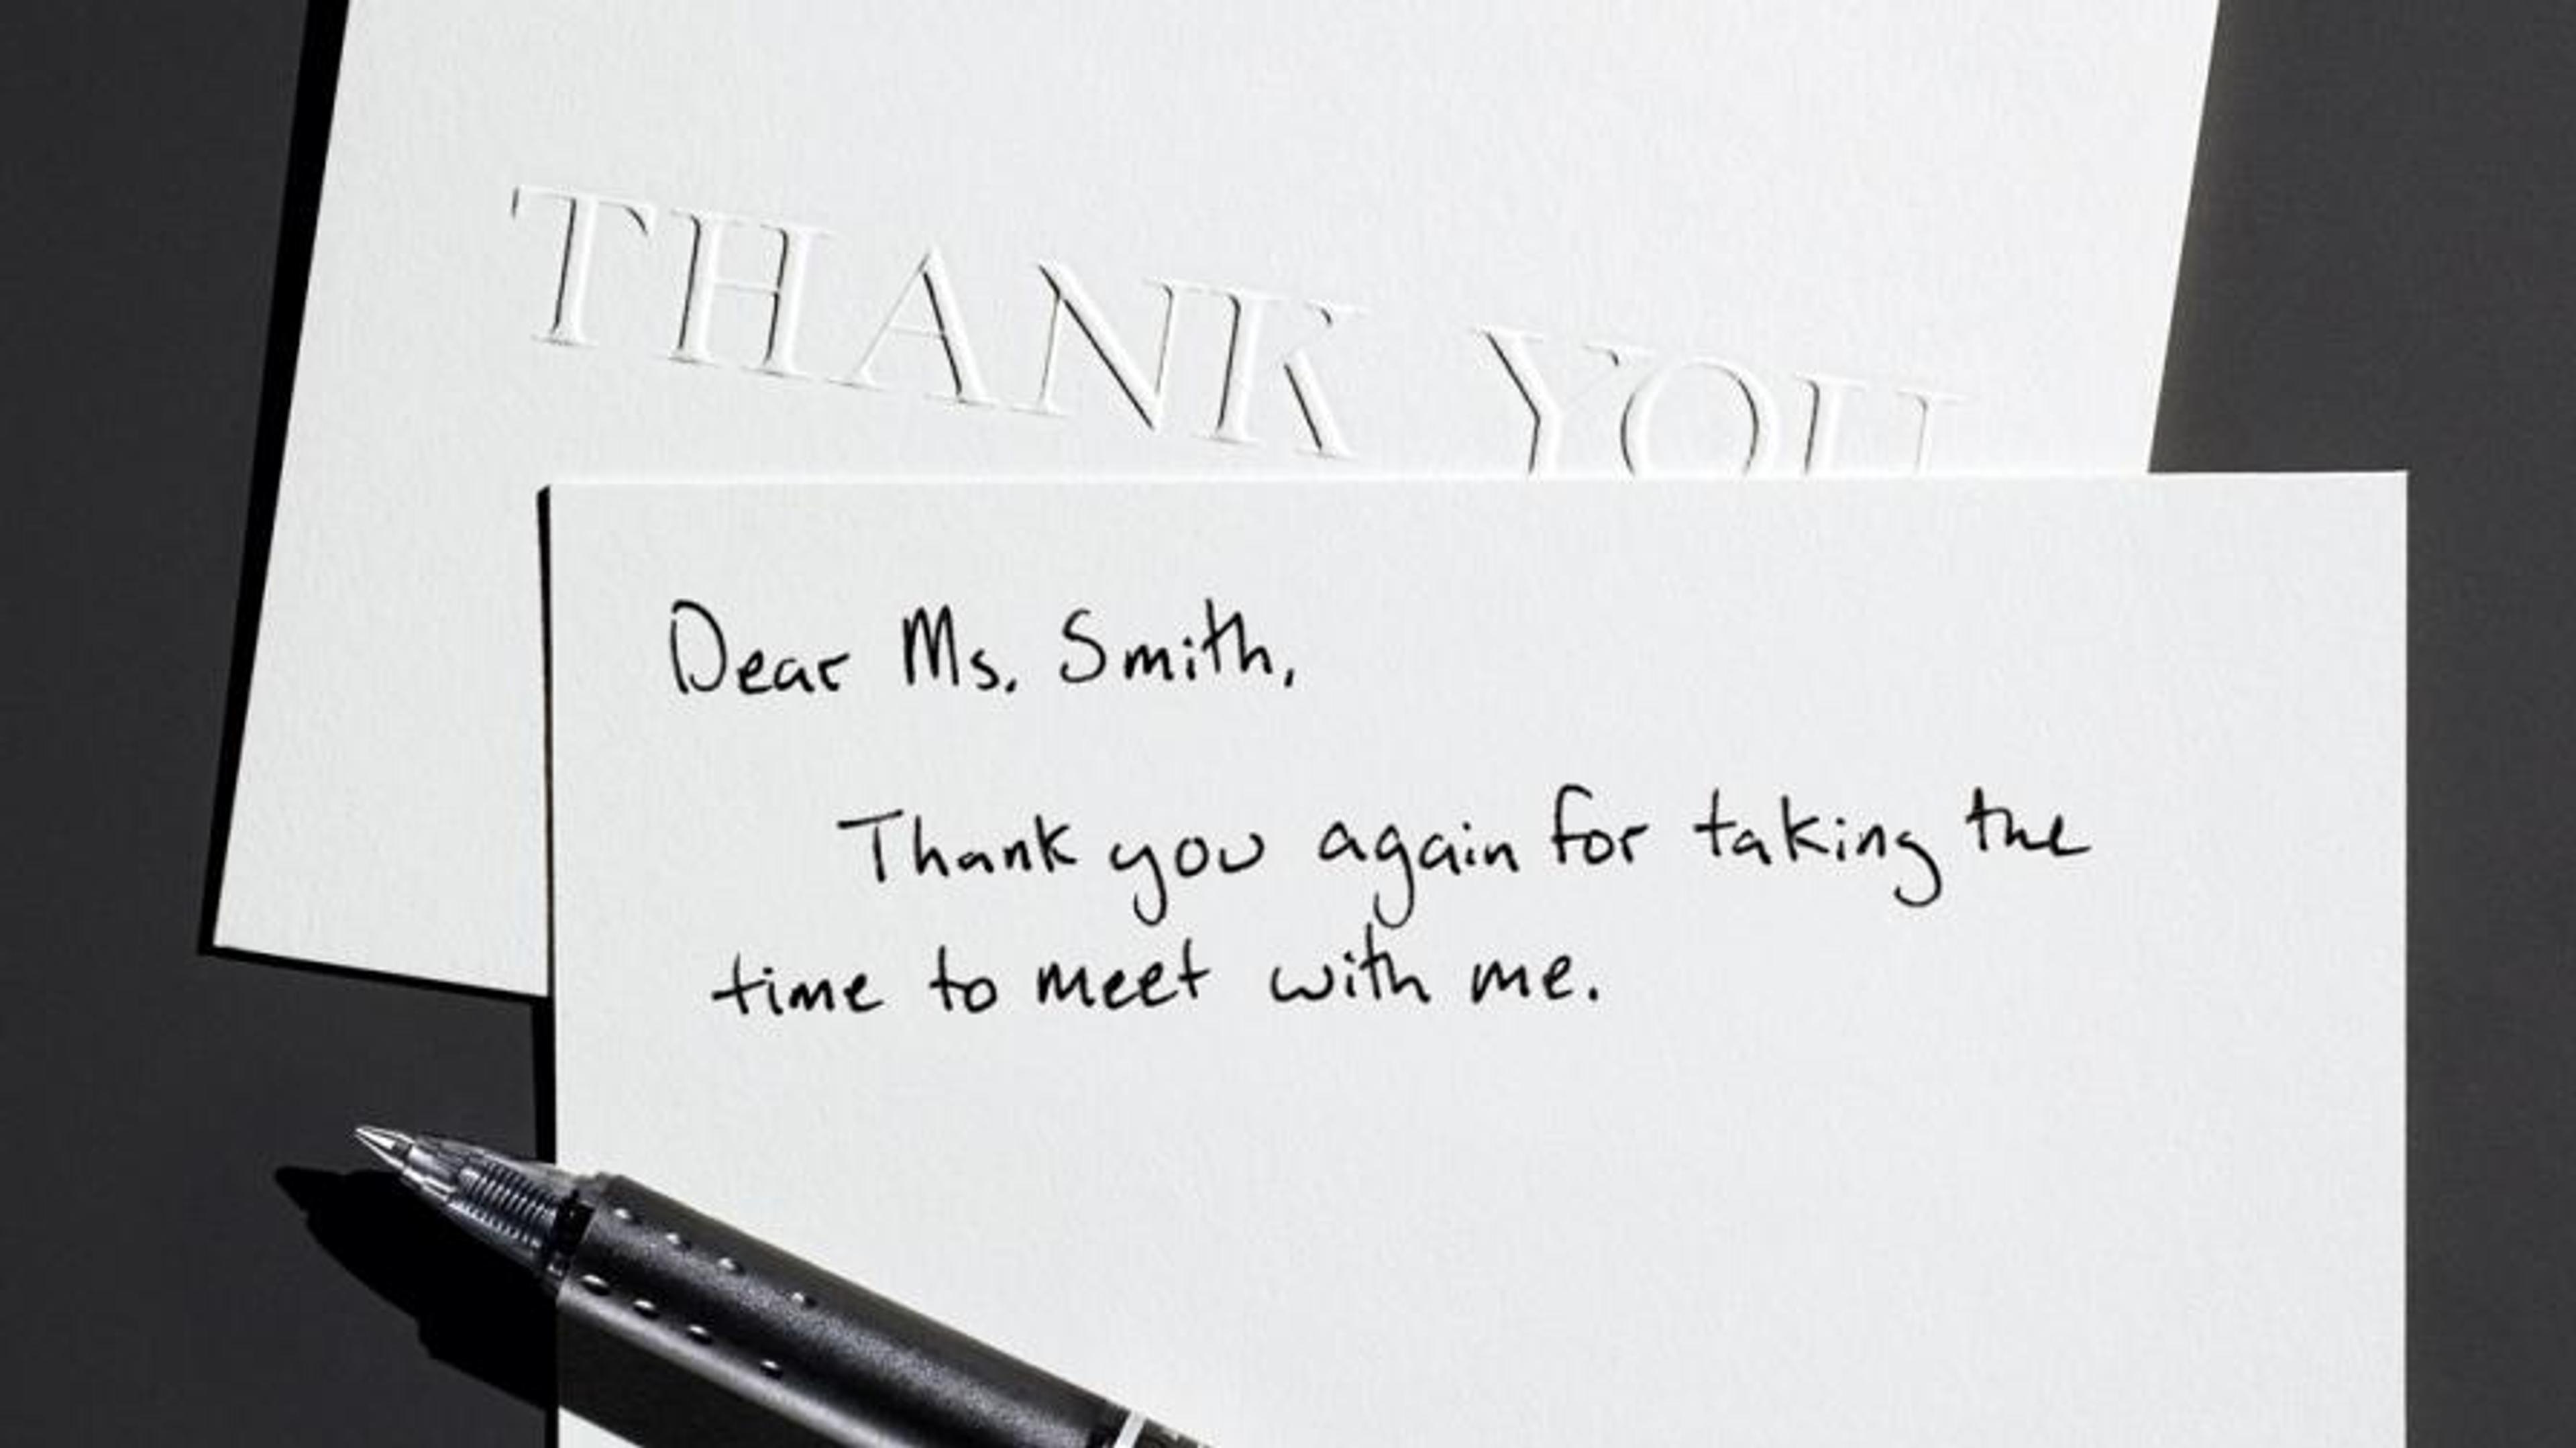 THANK YOU
Dear Ms. Smith,
Thank you again for taking the
time to meet with me.